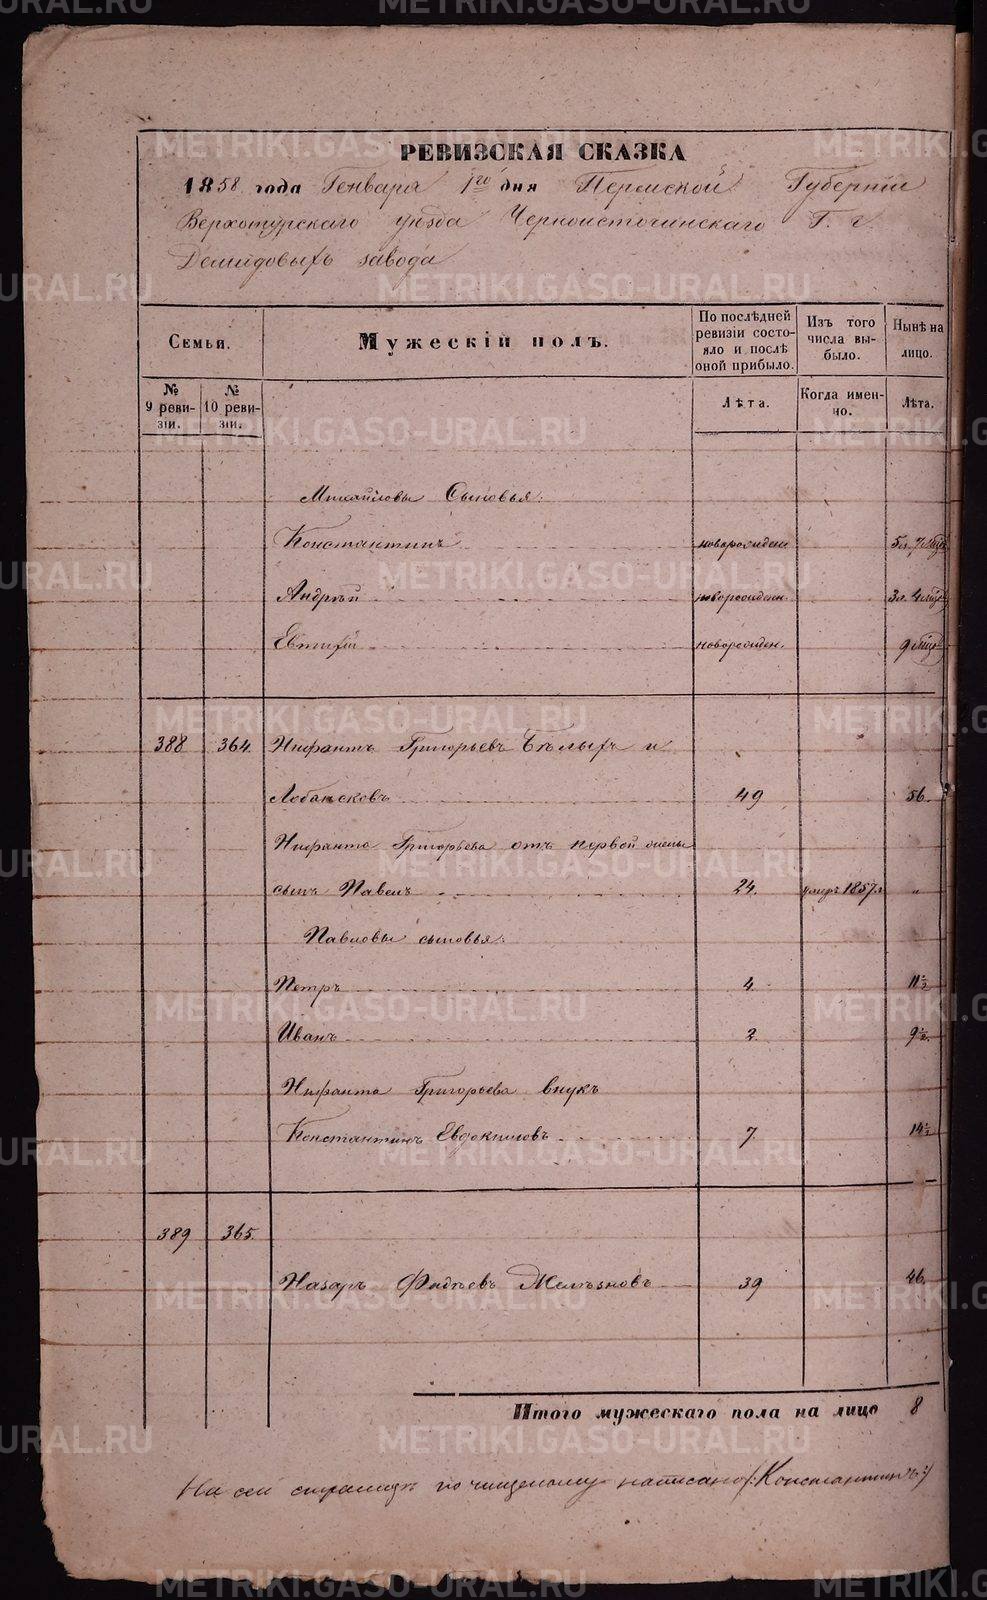 РЕВИЗСКАЯ СКАЗКА
1858 года Генваря 1го дня Пермской Губерніи
Верхотурскаго уѣзда Черноисточинскаго Г. г.
Демидовыхъ завода
Семьи.
Мужескій полъ.
По послѣдней ревизіи состояло и послѣ оной прибыло.
Изъ того числа выбыло.
Нынѣ на лицо.
№ 9 ревизіи.
№ 10 ревизіи.
Лѣта.
Когда именно.
Лѣта.
Михайловы Сыновья:
Константинъ новорожден. 5 л. 7 мѣс.
Андрѣй новорожден. 3 л. 4 мѣс.
Евтифій новорожден. 9 мѣс.
388 364. Нифантъ Григорьевъ Бѣлыхъ и
Лобансковъ 49 56.
Нифанта Григорьева отъ первой жены
сынъ Павелъ 24. умеръ 1857 г. "
Павловы сыновья:
Петръ 4. 11½
Иванъ 2. 9½.
Нифанта Григорьева внукъ
Константинъ Евдокимовъ 7. 14½
389 365.
Назаръ Фадѣевъ Желѣзновъ 39 46.
Итого мужескаго пола на лицо 8
На сей страницѣ по чищеному написано /:Константинъ:/
METRIKI.GASO-URAL.RU